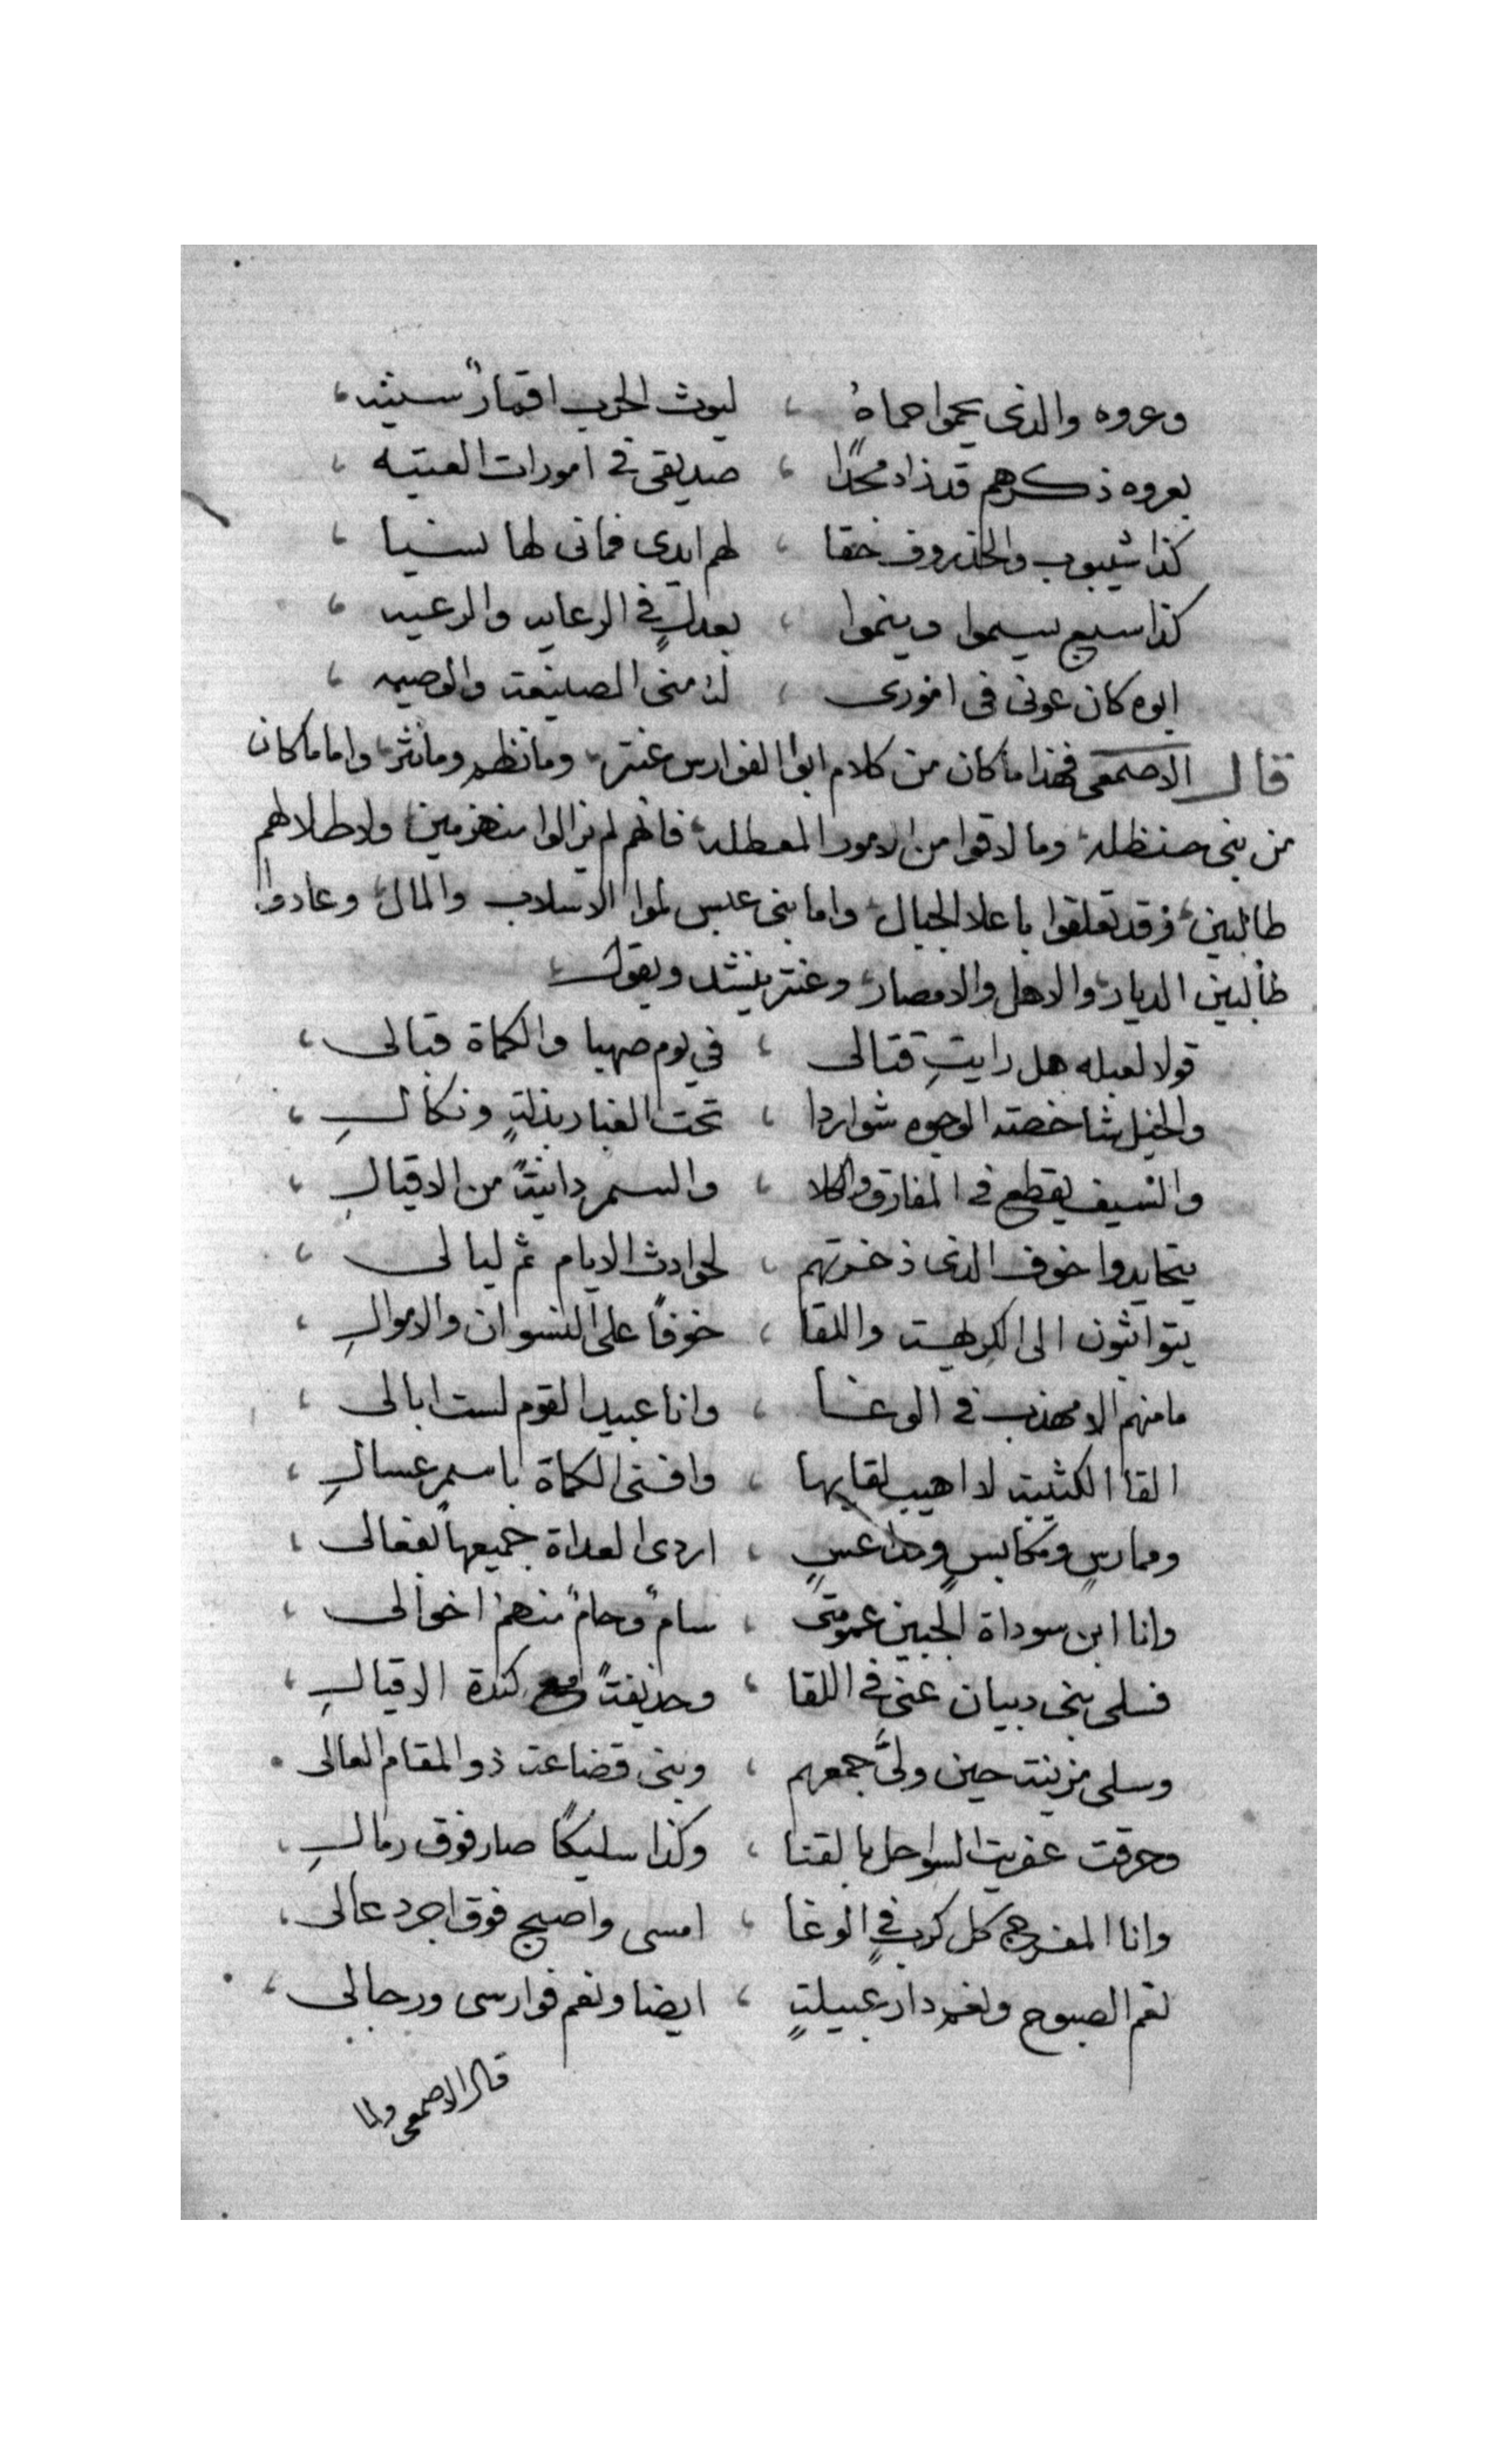 وعروه والذى يحموا حماهُ ، ليوث الحرب اقمارً سنيه ،
بعروه ذكرهم قد زاد مجدًا ، صديقى فى امورات العتيه ،
كذا شيبوب والخذروف حقا ، لهم ايدى فمانى لها نسيا ،
كذا سبيع يسموا وينموا ، بعدلٍ فى الرعايه والرعيه ،
ابوه كان عونى فى امورى ، لذ منى الصنيعه والوصيه ،
قال الاصمعى فهذا ما كان من كلام ابوا الفوارس عنتر، وما نظم وما نثر، واما ما كان
من بنى حنظله، وما لاقوا من الامور المعطله، فانهم لم يزالوا منهزمين، ولاطلالهم
طالبين، وقد تعلقوا باعلا الجبال، واما بنى عبس لموا الاسلاب والمال، وعادوا
طالبين الديار، والاهل والامصار، وعنتر ينشد ويقول
قولا لعبله هل رايتِ قتالى ، في يوم صهبا والكماة قبالى ،
والخيل شاخصة الوجوه شواردا ، تحت الغبار بذلةٍ ونكالِ ،
والسيف يقطع فى المفارق والكلا ، والسمر دانيةً من الاقيالِ ،
يتحايدوا خوف الذى ذخرتهم ، لحوادث الايام ثم ليالى ،
يتواثبون الى الكريهة واللقا ، خوفًا على النسوان والاموالِ ،
ما منهم الا مهذب فى الوغا ، وانا عبيد القوم لست ابالى ،
القا الكثيبة لا اهيب لقايها ، وافنى الكماة باسمرٍ عسالِ ،
وممارسٍ ومكابسٍ ومداعسٍ ، اردى العداة جميعها بفعالى ،
وانا ابن سوداة الجبين عمومتى ، سامً وحامً منهم اخوالى ،
فسلى بنى دبيان عنى فى اللقا ، وحذيفةً مع كندة الاقيالِ ،
وسلى مزينة حين ولَّى جمعهم ، وبنى قضاعة ذو المقام العالى
وحرقت عفريت السواحل بالقنا ، وكذا سليكًا صار فوق رمالِ ،
وانا المفرج كل كربٍ فى الوغا ، امسى واصبح فوق اجرد عالى ،
نعم الصبوح ونعم دار عبيلةٍ ، ايضا ونعم فوارسى ورجالى ،
قال الاصمعى ولما